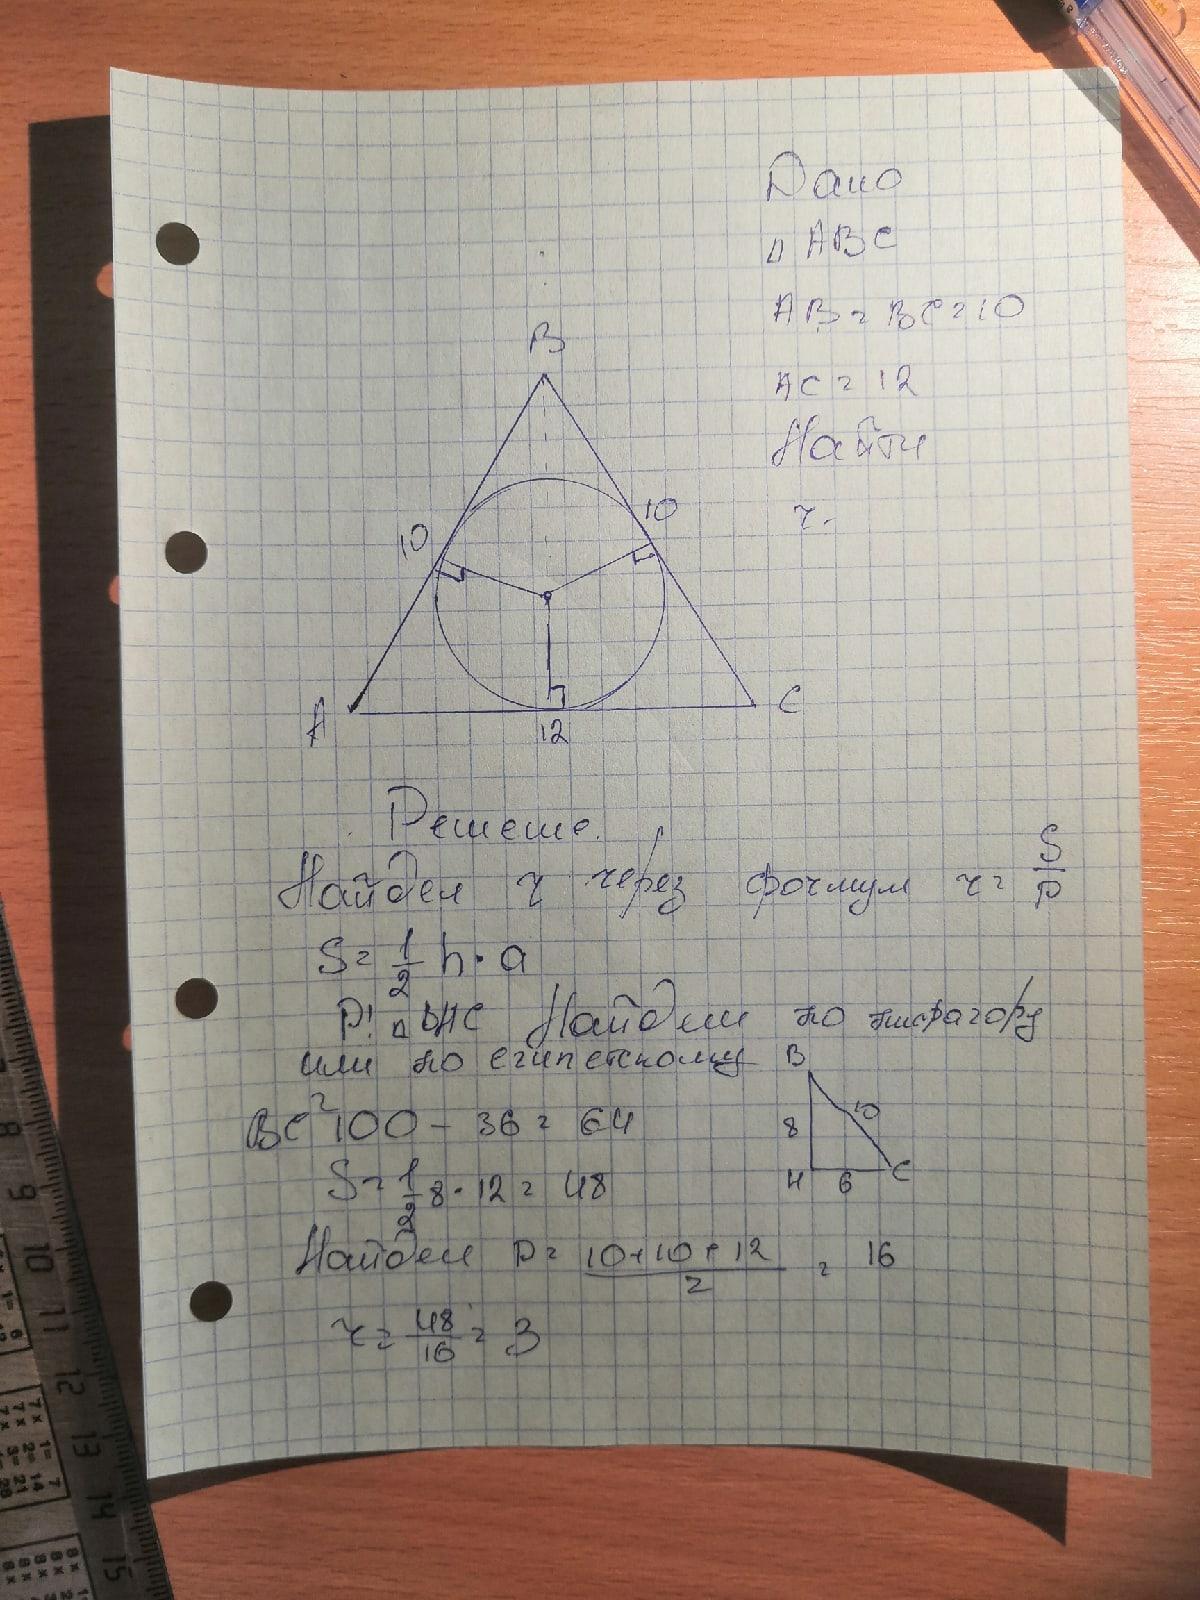 Дано
△ ABC
AB = BC = 10
AC = 12
Найти
r.
B
10
10
A
C
12
Решение.
Найдем r через формул r = S/p
S = 1/2 h · a
P! △ BHC Найдем по пифагору
или по египетскому
B
BC² 100 - 36 = 64
8
10
S = 1/2 8 · 12 = 48
H
6
C
Найдем p = (10 + 10 + 12)/2 = 16
r = 48/16 = 3
8
9
10
11
12
13
14
15